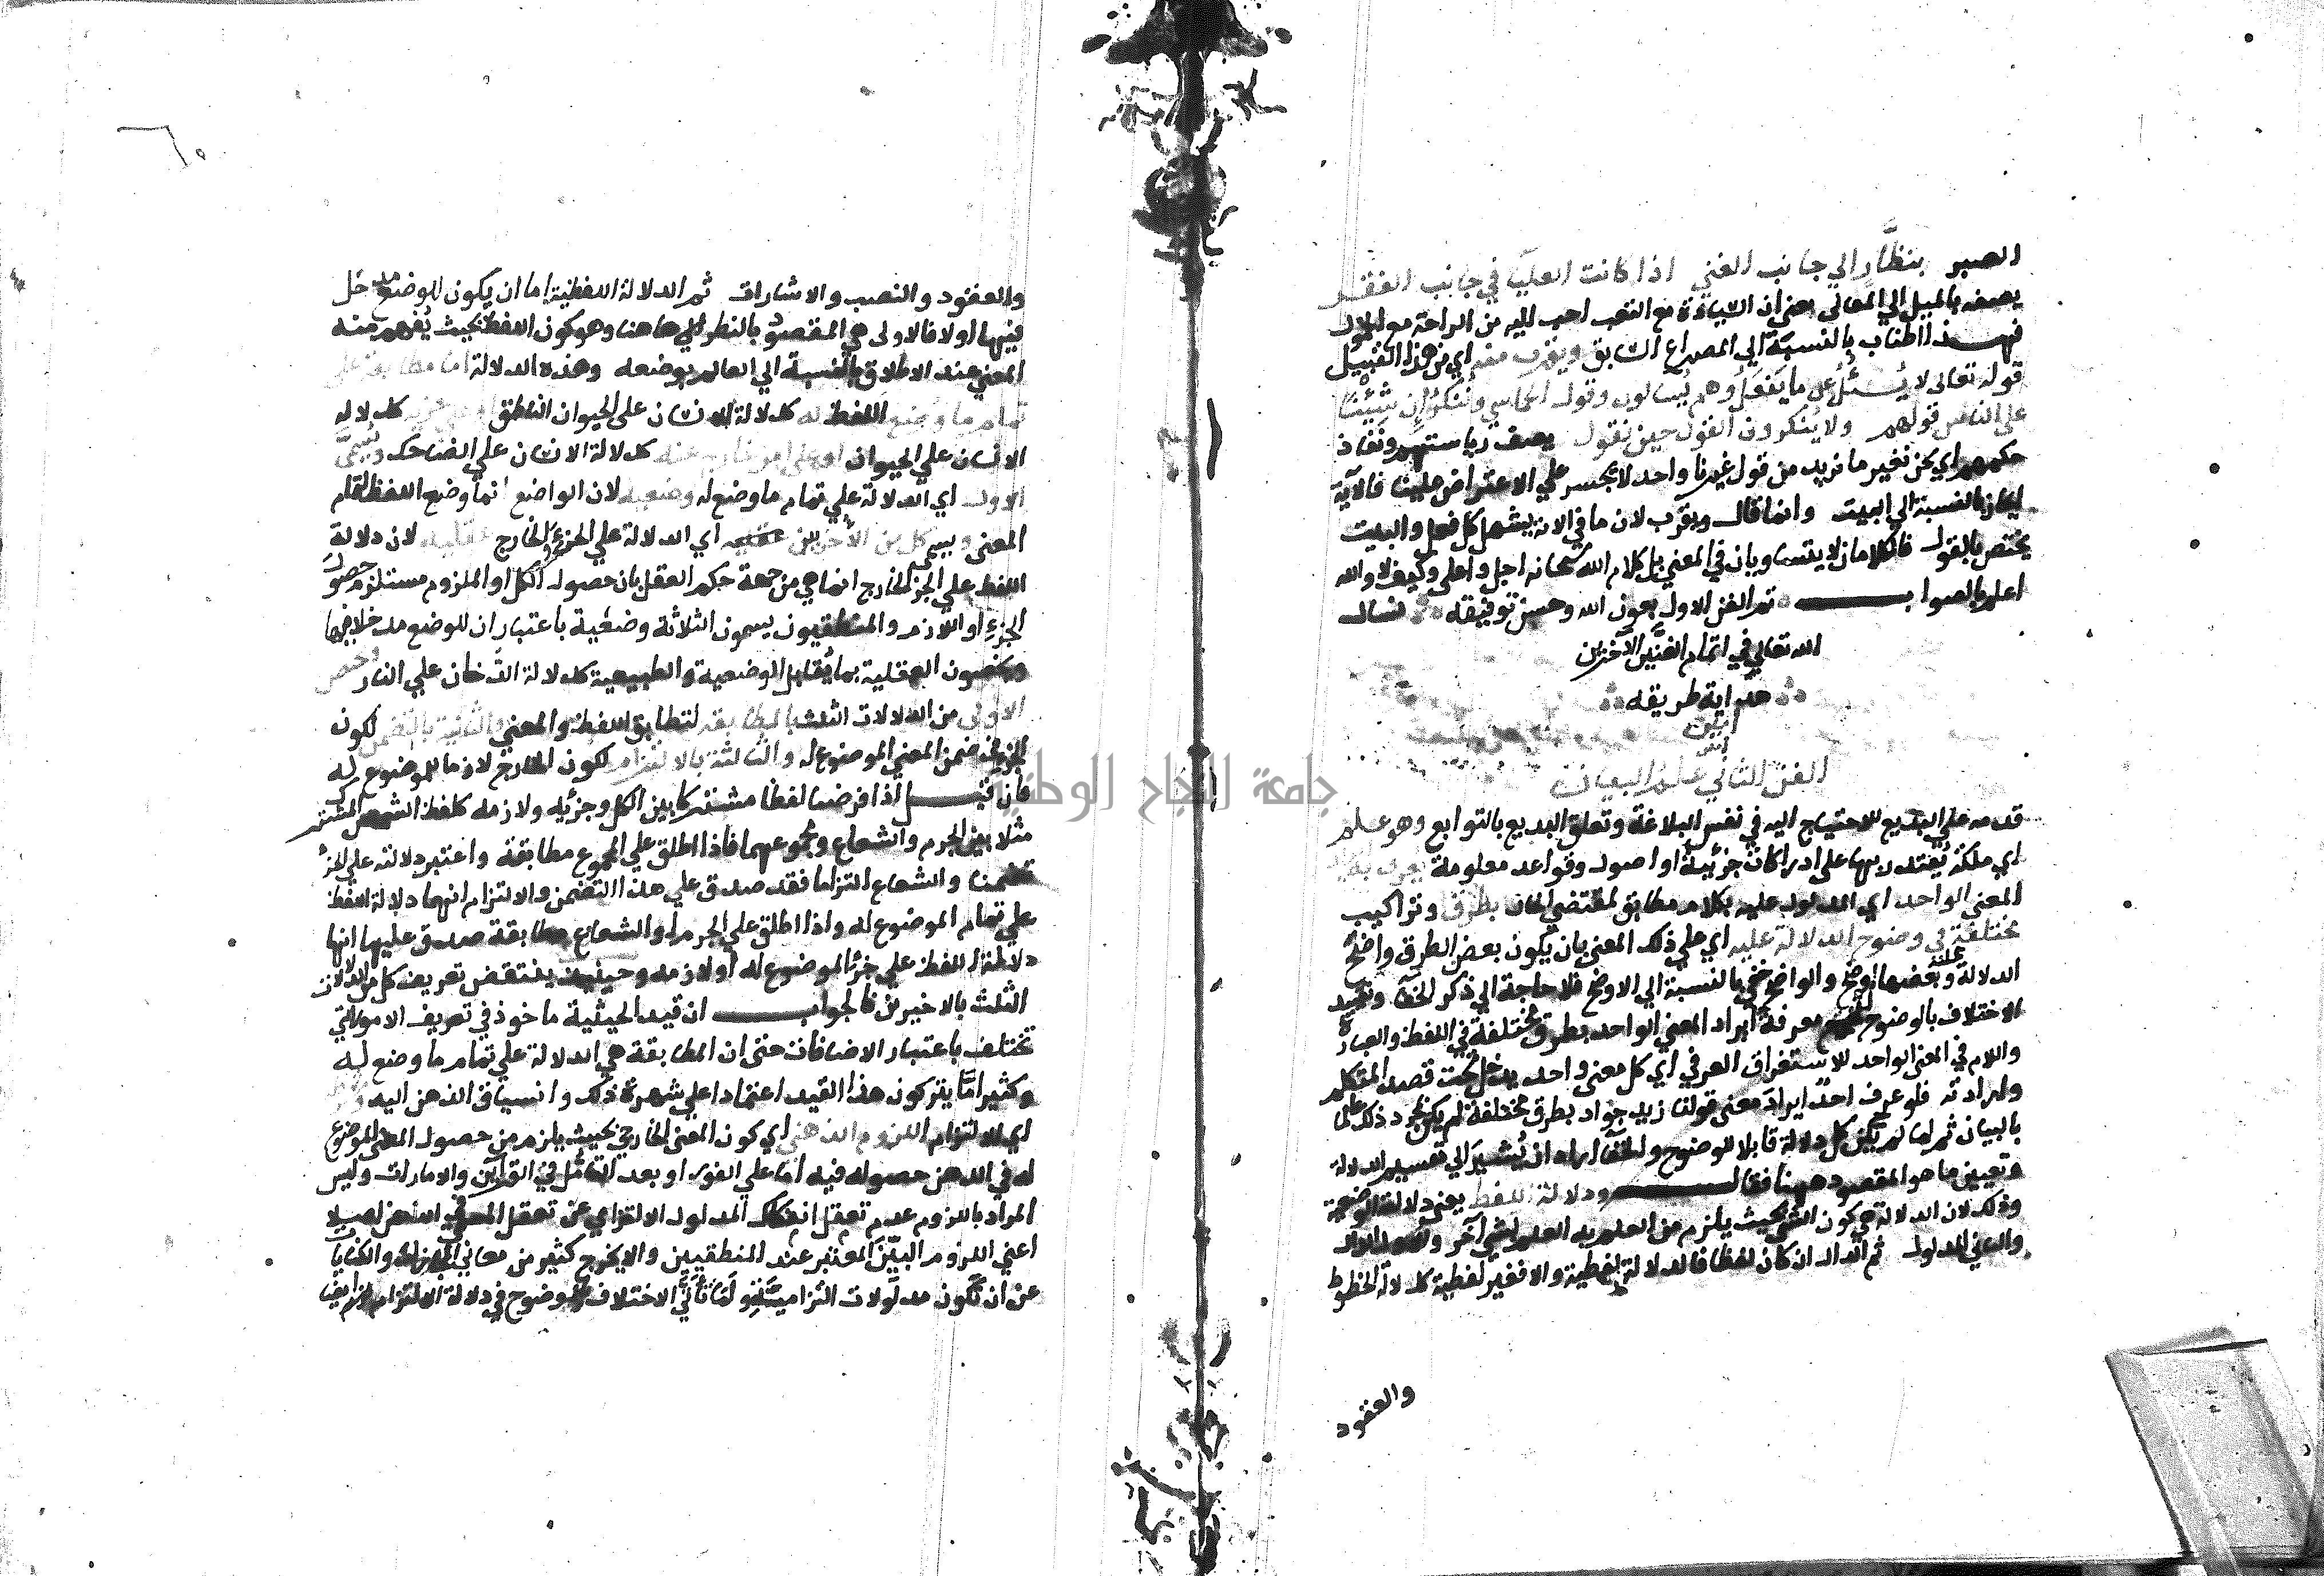 الصبر بنظّار الي جانب الغني اذا كانت العليآ في جانب الفقر
يصفه بالميل الي المعالي يعني ان السيادة مع التعب احب اليه من الراحة مع الخمول
فهذا اطناب بالنسبة الي المصراع السابق ويقرب منه اي من هذا القبيل
قوله تعالى لا يُسئل عما يفعل وهم يسالون وقول الحماسي وننكر ان شئنا
علي الناس قولهم ولا ينكرون القول حين نقول يصف رياستهم ونفاذ
حكمهم اي نحن نغير ما نريد من قول غيرنا واحد لا يجسر علي الاعتراض علينا فالآية
ايجاز بالنسبة الي البيت وانما قال ويقرب لان ما في الاية يشمل كل فعل والبيت
يختص بالقول فالكلامان لا يتساويان في المعني بل كلام الله سبحانه اجل واعلى وكيف لا والله
اعلم بالصواب تم الفن الاول بعون الله وحسن توفيقه نسال
الله تعالي في اتمام الفنين الآخرين
هداية طريقه
امين
الفن الثاني علم البيان
قدمه علي البديع للاحتياج اليه في نفس البلاغة وتعلق البديع بالتوابع وهو علم
اي ملكة يقتدر بها على ادراكات جزئية او اصول وقواعد معلومة يعرف به
المعني الواحد اي المدلول عليه بكلام مطابق لمقتضي الحال بطرق وتراكيب
مختلفة في وضوح الدلالة عليه اي على ذلك المعني بان يكون بعض الطرق واضح
الدلالة عليه وبعضها اوضح والواضح خفي بالنسبة الي الاوضح فلا حاجة الي ذكر الخفآ وتقييد
الاختلاف بالوضوح معرفة ايراد المعني الواحد بطرق مختلفة في اللفظ والعبارة
واللام في المعني الواحد للاستغراق العرفي اي كل معني واحد يدخل تحت قصد المتكلم
وارادته فلو عرف احد ايراد معني قولنا زيد جواد بطرق مختلفة لم يكن بمجرد ذلك عالما
بالبيان ثم لما لم يكن كل دلالة قابلا للوضوح والخفآ اراد ان يشير الي تقسيم الدلالة
وتعيين ما هو المقصود ههنا فقال ودلالة اللفظ يعني دلالته الوضعية
وذلك لان الدلالة هي كون الشي بحيث يلزم من العلم به العلم بشي آخر والاول الدال
والثاني المدلول ثم الدال ان كان لفظا فالدلالة لفظية والا فغير لفظية كدلالة الخطوط
والعقود
والعقود والنصب والاشارات ثم الدلالة اللفظية اما ان يكون للوضع مدخل
فيها اولا فالاولى هي المقصود بالنظر ههنا وهو كون اللفظ بحيث يُفهم منه
المعني عند الاطلاق بالنسبة الي العالم بوضعه وهذه الدلالة اما مطابقة على
تمام ما وضع اللفظ له كدلالة الانسان على الحيوان الناطق كدلالة
الانسان علي الحيوان او علي امر خارج عنه كدلالة الانسان علي الضاحك وتسمى
الاولي اي الدلالة علي تمام ما وضع له وضعية لان الواضع انما وضع اللفظ لتمام
المعني ويسمي كل من الآخرين اي الدلالة علي الجزء والخارج عقلية لان دلالة
اللفظ علي الجز والخارج انما هي من جهة حكم العقل بان حصول الكل او الملزوم مستلزم حصول
الجزء او اللازم والمنطقيون يسمون الثلاثة وضعية باعتبار ان للوضع مدخلا فيها
ويخصون العقلية بما يقابل الوضعية والطبيعية كدلالة الدخان علي النار وتختص
الاولى من الدلالات الثلث بالمطابقة لتطابق اللفظ والمعني والثانية بالتضمن لكون
الجزء في ضمن المعني الموضوع له والثالثة بالالتزام لكون الخارج لازما للموضوع له
فان قيل اذا فرضنا لفظا مشتركا بين الكل وجزئه ولازمه كلفظ الشمس المشترك
مثلا بين الجرم والشعاع ومجموعهما فاذا اطلق علي المجموع مطابقة واعتبر دلالته علي الجرم
تضمنا والشعاع التزاما فقد صدق علي هذا التضمن والالتزام انهما دلالة اللفظ
علي تمام الموضوع له واذا اطلق علي الجرم او الشعاع مطابقة صدق عليها انها
دلالة اللفظ علي جزء الموضوع له او لازمه وحينئذ ينتقض تعريف كل من الدلالات
الثلث بالاخيرين فالجواب ان قيد الحيثية ماخوذ في تعريف الامور التي
تختلف باعتبار الاضافات حتى ان المطابقة هي الدلالة علي تمام ما وضع له
وكثيرا ما يتركون هذا القيد اعتمادا علي شهرة ذلك وانسياق الذهن اليه
اي الالتزام اللزوم الذهني اي كون المعني الخارجي بحيث يلزم من حصول المعني الموضوع
له في الذهن حصوله فيه اما علي الفور او بعد التأمل في القرآين والامارات وليس
المراد باللزوم عدم تعقل انفكاك المدلول الالتزامي عن تعقل المسمي في الذهن اصلا
اعني اللزوم البيّن المعتبر عند المنطقيين والا يخرج كثير من معاني المجازات والكنايات
عن ان تكون مدلولات التزامية ولما تأتّي الاختلاف بالوضوح في دلالة الالتزام ايضا
جامعة النجاح الوطنية